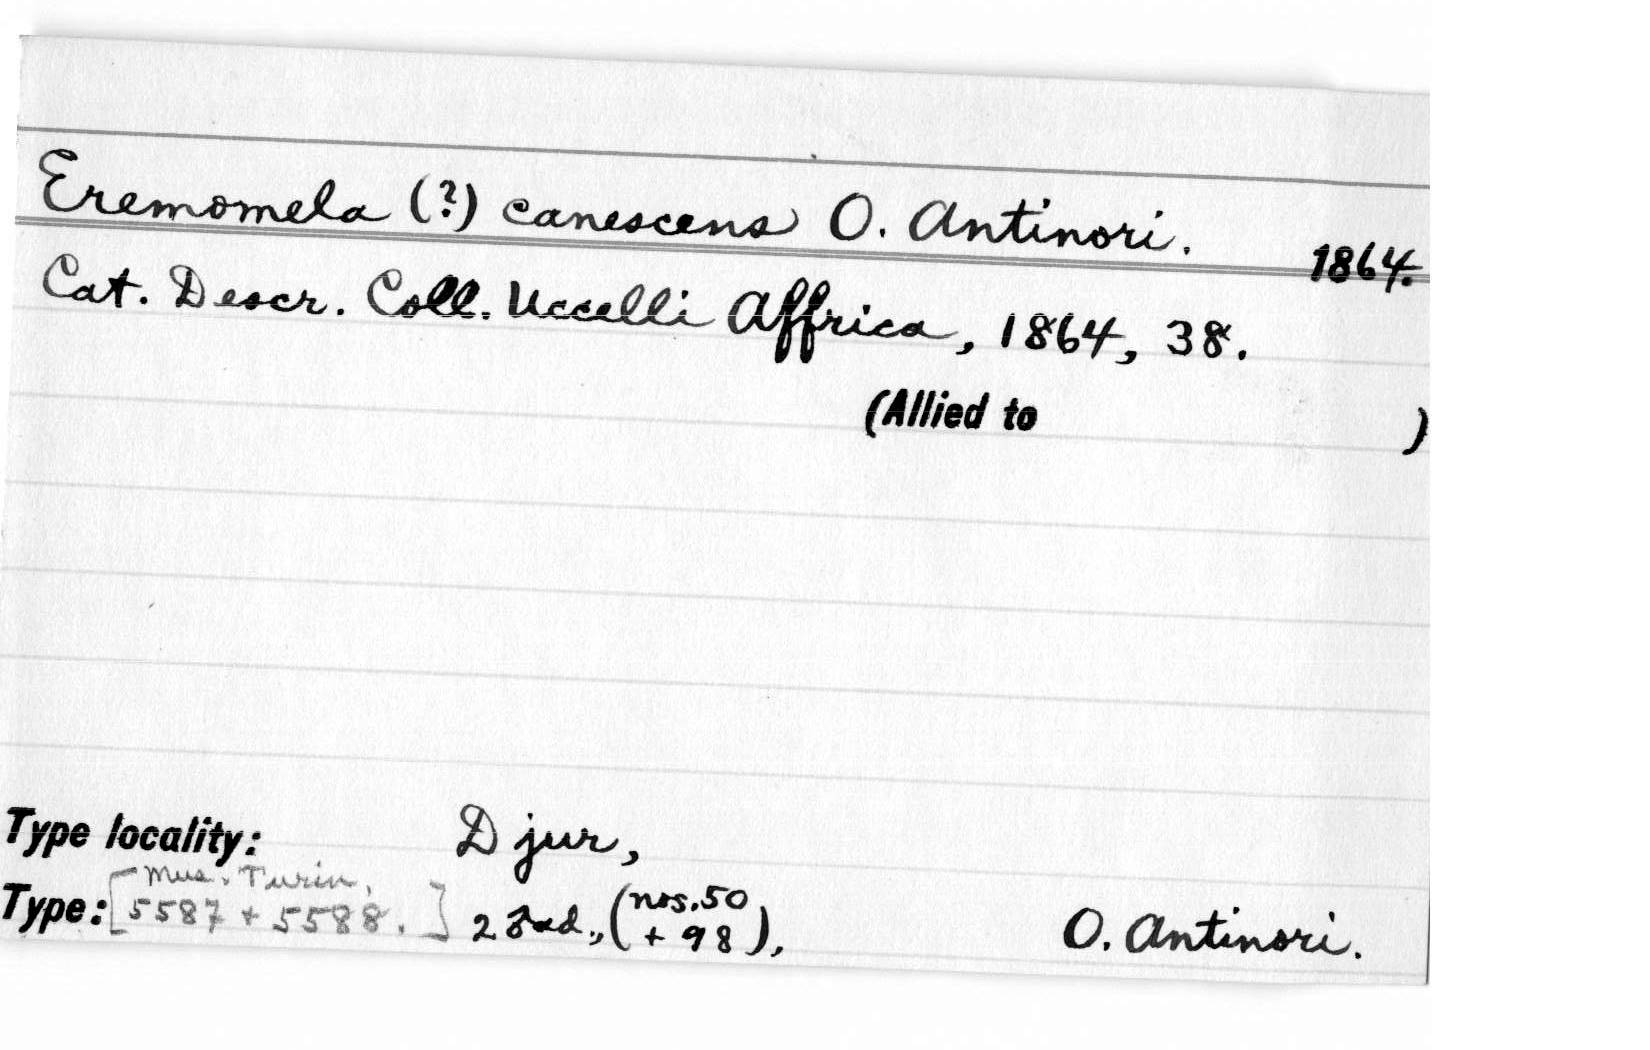 Eremomela (?) canescens O. Antinori. 1864.
Cat. Descr. Coll. Uccelli Affrica, 1864, 38.
(Allied to )
Type locality: Djur,
Type: [Mus. Turin. 5587 + 5588.] 2 ♂ ad., (nos. 50 + 98), O. Antinori.